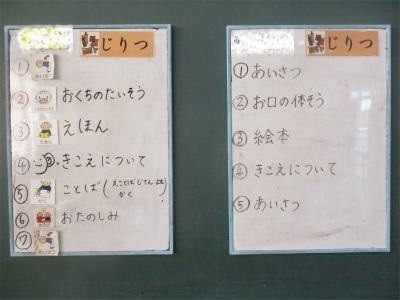 じりつ
① あいさつ
② おくちのたいそう
③ えほん
④ きこえについて
⑤ ことば(えことばじてん よむ かく)
⑥ おたのしみ
⑦ あいさつ
じりつ
① あいさつ
② お口の体そう
③ 絵本
④ きこえについて
⑤ あいさつ